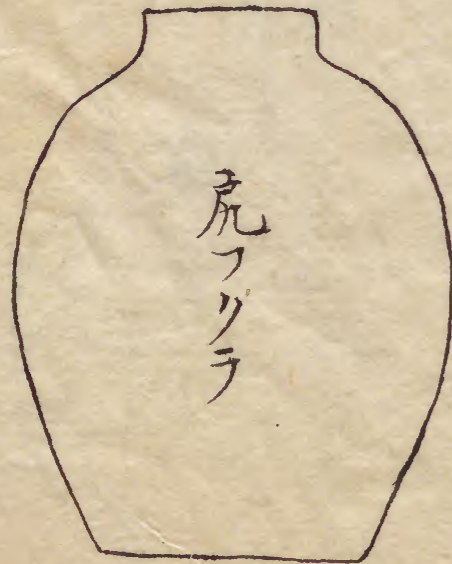 尻フクラ